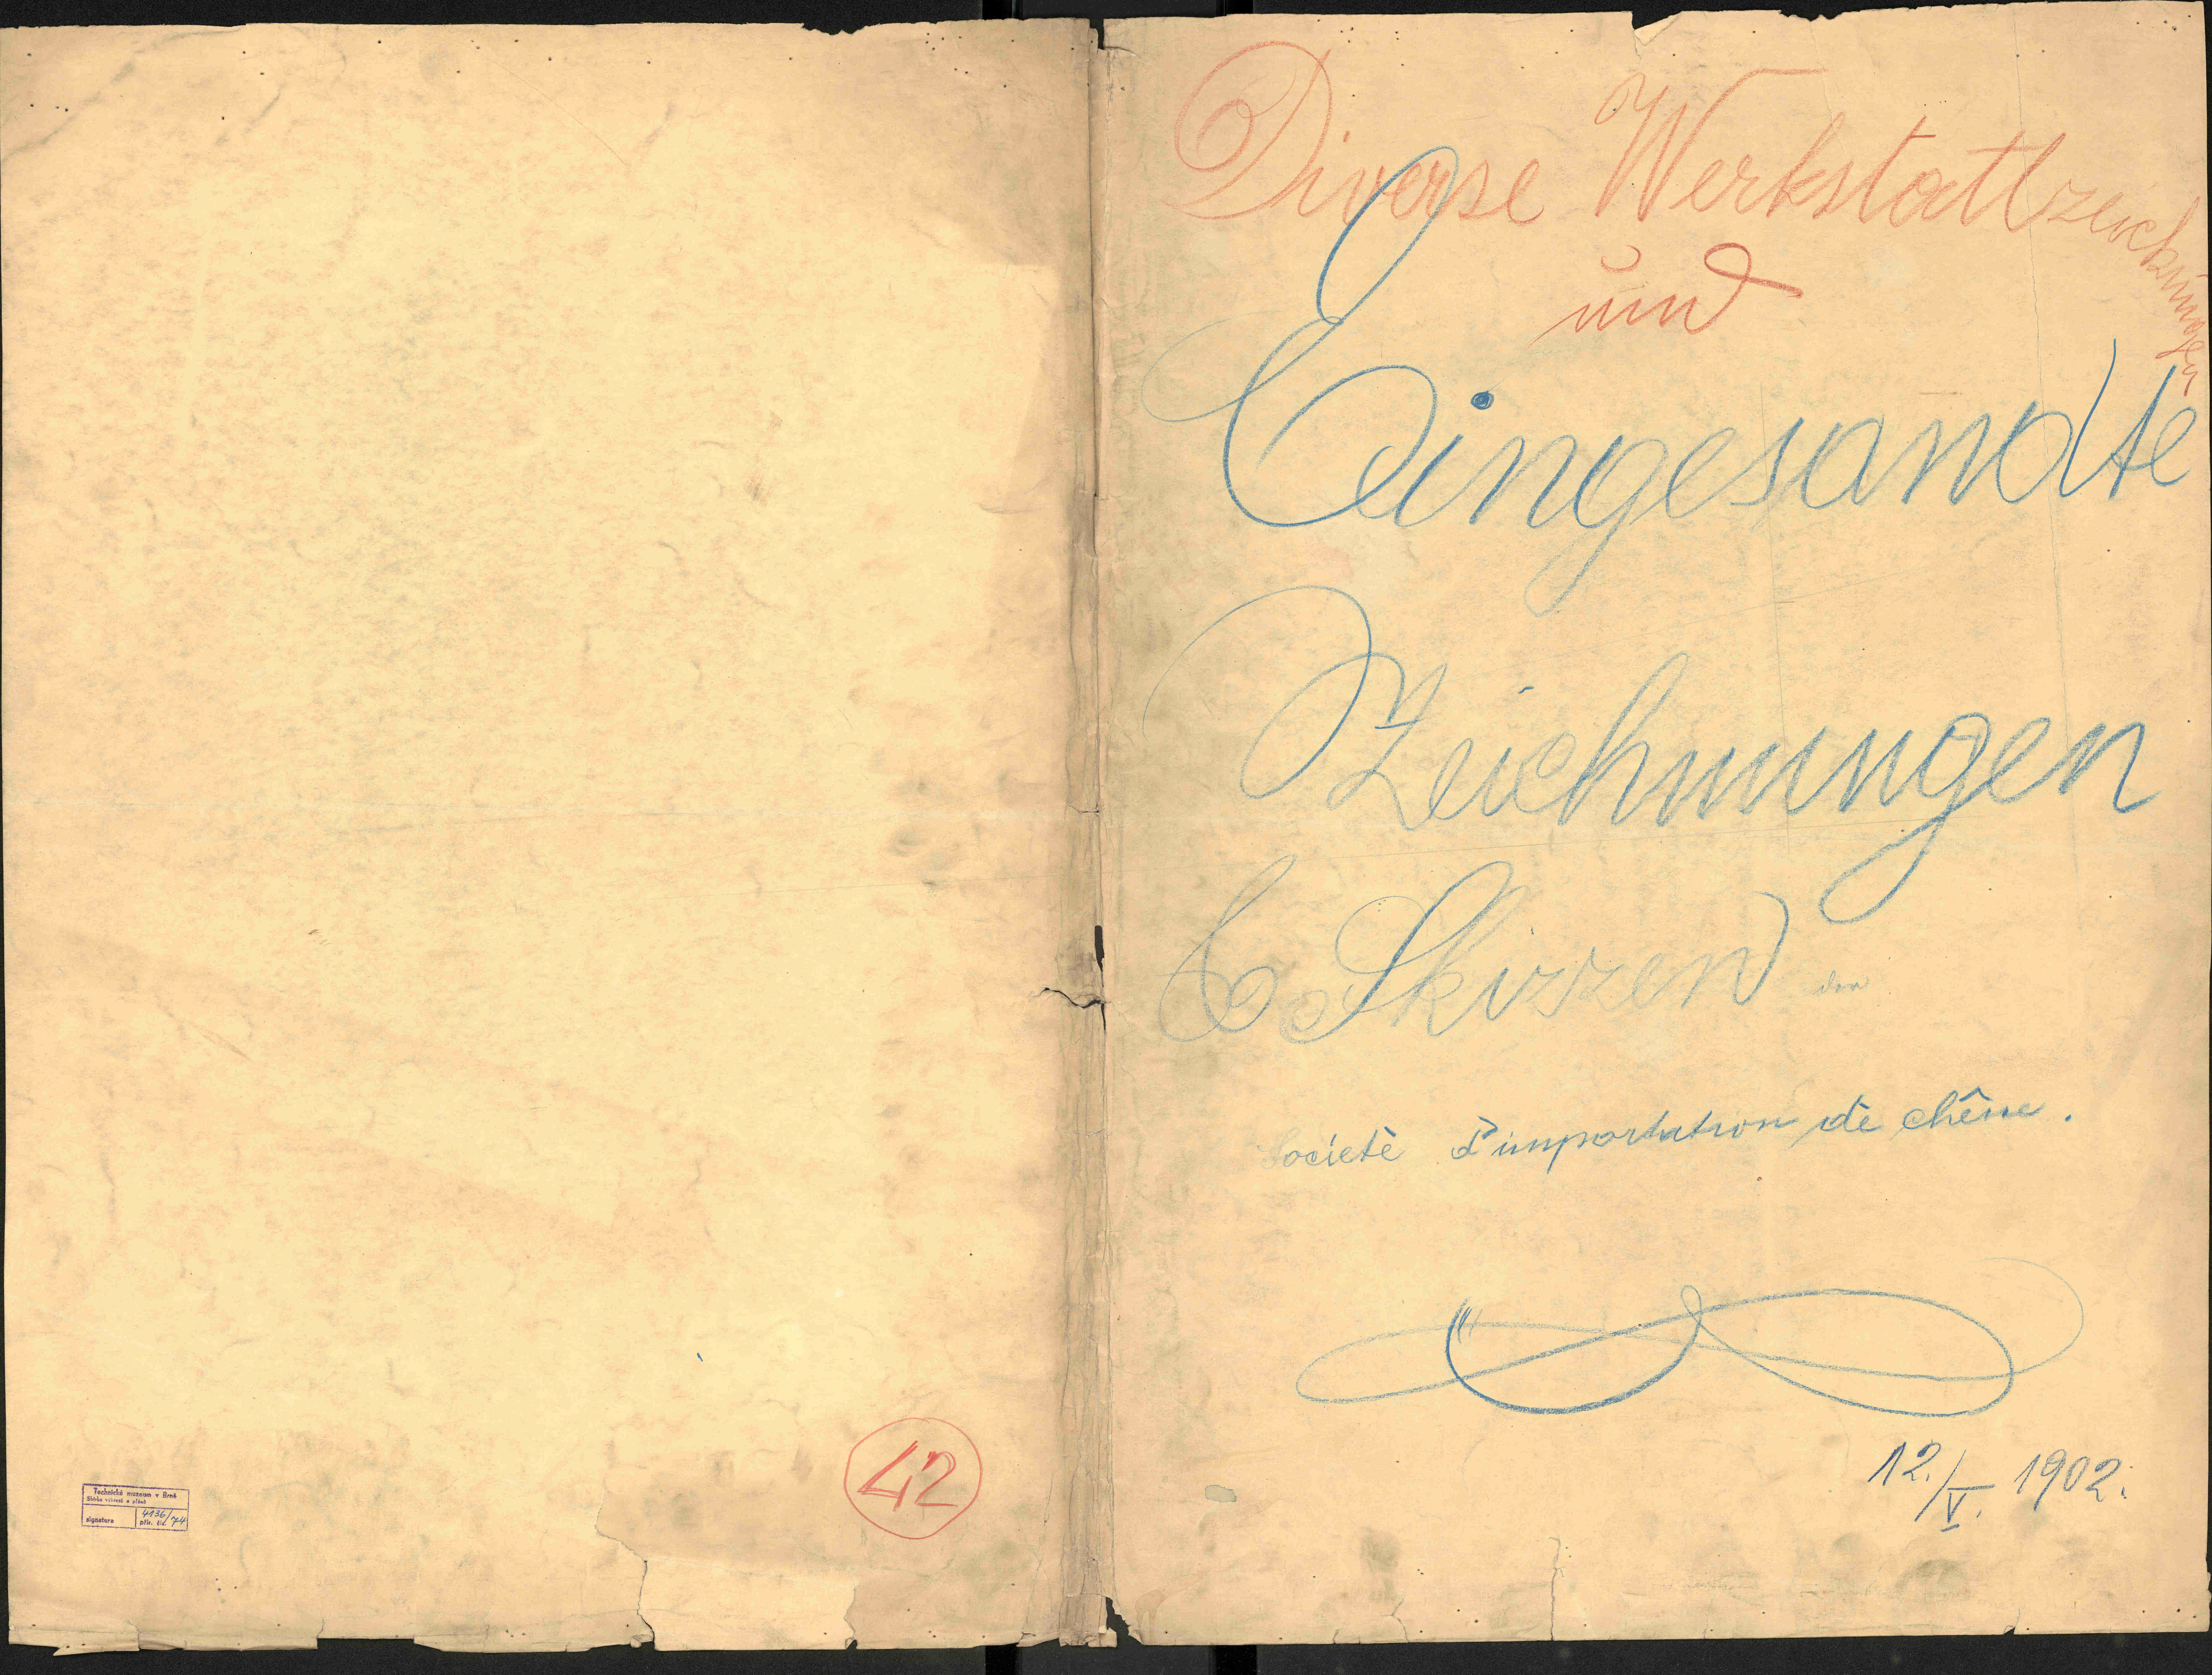 Diverse Werkstattzeichnungen
und
Eingesandte
Zeichnungen
& Skizzen der
Societè d'importation de chêne.
12./V. 1902.
42
Technické muzeum v Brně
Sbírka výkresů a plánů
signatura
4136/74
přír. čís.